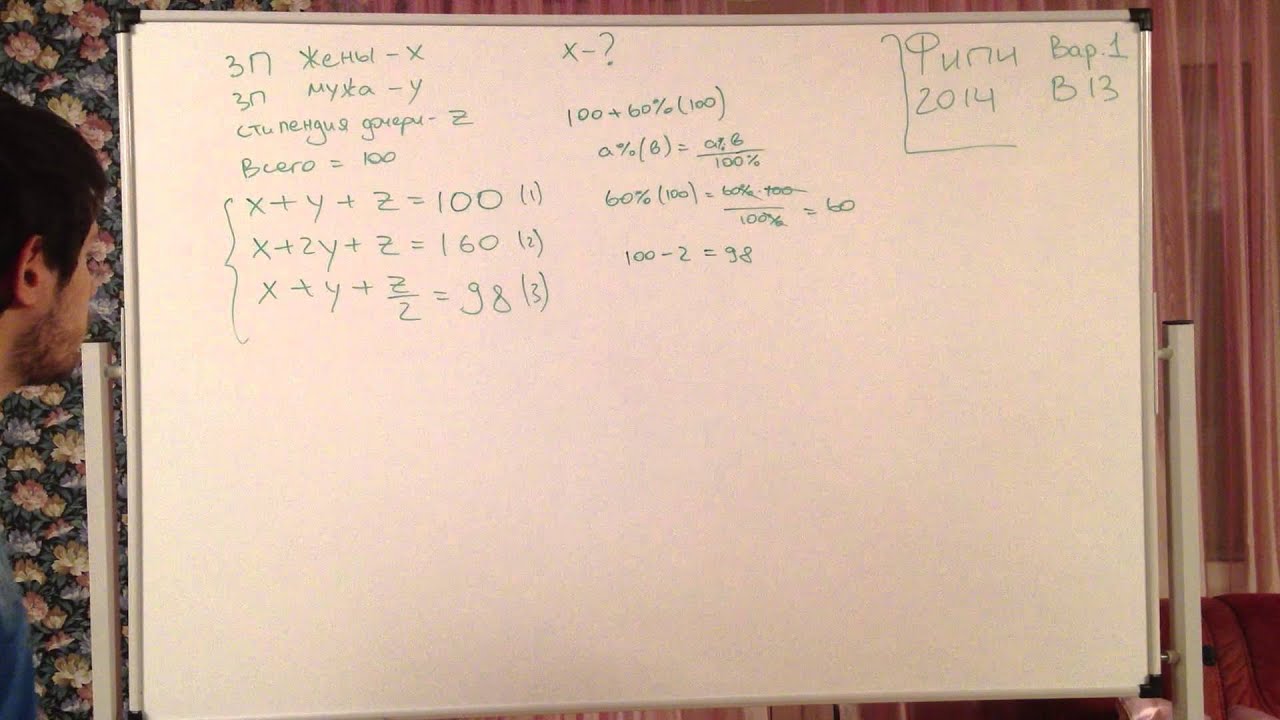 ЗП жены - x
ЗП мужа - y
стипендия дочери - z
Всего = 100
x + y + z = 100 (1)
x + 2y + z = 160 (2)
x + y + z/2 = 98 (3)
x - ?
100 + 60% (100)
a% (b) = a% b / 100%
60% (100) = 60% · 100 / 100% = 60
100 - 2 = 98
Фипи Вар. 1
2014 В 13